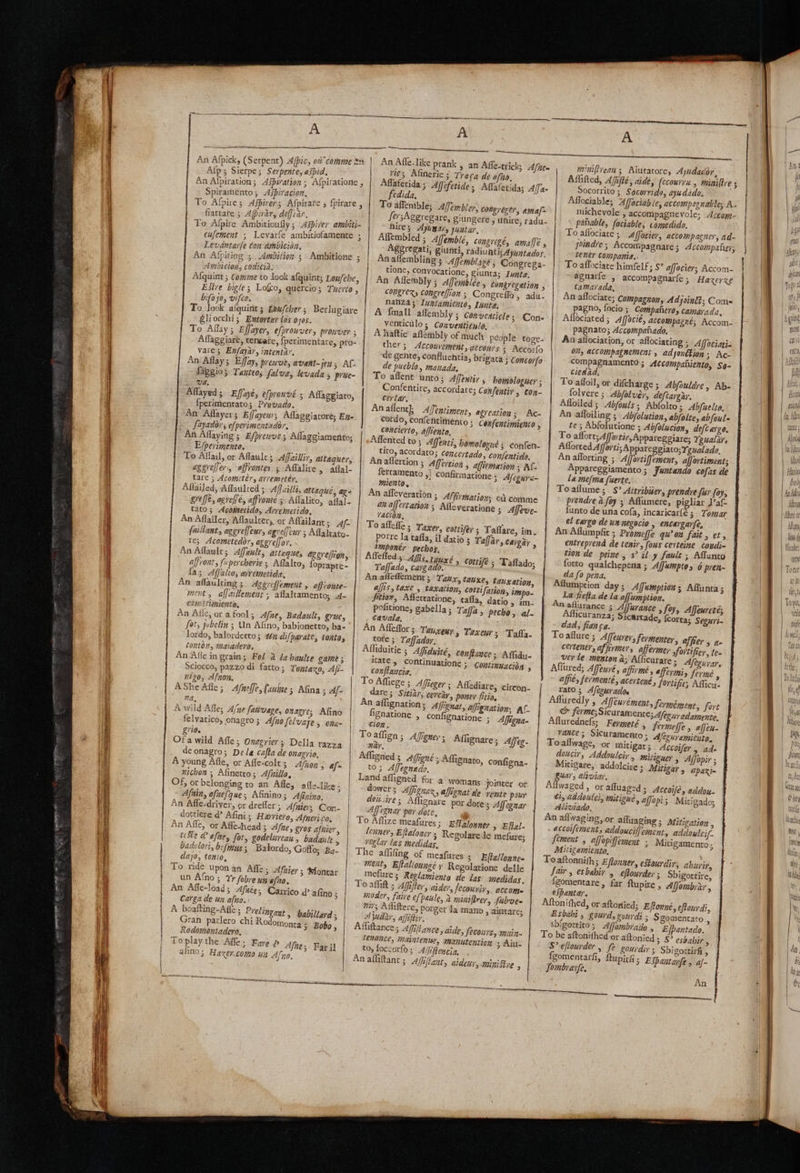 A
An Aſpick, (Serpent) Aſpic, ou' comme un
Aſp; Sierpe; Serpente, aſpid.
An Aſpiration; Aſpiration; Aſpiratione,
Spiramento; Aſpiracion.
To Aſpire; Aſpirer; Aſpirare, ſpirare,
fiattare; Aſpiràr, deſſeàr.
To Aſpire Ambitiouſly; Aſpirer ambiti-
euſement; Levarſe ambitioſamente;
Levantarſe con ambicion.
An Aſpiring; Ambition; Ambitione;
Ambicion, codicia.
Aſquint; comme to look aſquint; Louſche,
Eſtre bigle; Loſco, quercio; Tuerto,
biſojo, viſco.
To look aſquint; Louſcher; Berlugiare
gli occhi; Entortar los ojos.
To Aſſay; Eſſayer, eſprouver, prouver;
Aſſaggiare, tentare, ſperimentare, pro-
vare; Enſayàr, intentàr.
An Aſſay; Eſſay, preuve, avant-jeu; Aſ-
ſaggio; Tanteo, ſalva, levada, prue-
va.
Aſſayed; Eſſayé, eſprouvé; Aſſaggiato,
ſperimentato; Provado.
An Aſſayer; Eſſayeur; Aſſaggiatore; En-
ſayadòr, eſperimentadòr.
An Aſſaying; Eſpreuve; Aſſaggiamento;
Eſperimento.
To Aſſail, or Aſſault; Aſſaillir, attaquer,
aggreſſer, affronter; Aſſalire, aſſal-
tare; Acometèr, arremetèr.
Aſſailed, Aſſaulted; Aſſailli, attaqué, ag-
greſſé, agreſſé, affronté; Aſſalito, aſſal-
tato; Acometido, Arremetido.
An Aſſailer, Aſſaulter, or Aſſailant; Aſ-
ſaillant, aggreſſeur, agreſſeur; Aſſaltato-
re; Acometedòr, aggreſſor.
An Aſſault; Aſſault, atteque, aggreſſion,
affront, ſupercherie; Aſſalto, ſoprapre-
ſa; Aſſalto, arremetida.
An aſſaulting; Aggreſſement, affronte-
ment, aſſaillement; aſſaltamento; A-
cometimiento.
An Aſſe, or a fool; Aſne, Badault, grue,
ſot, jobelin; Un Aſino, babionetto, ba-
lordo, balordetto; un diſparate, tonto,
tontòn, maxadero.
An Aſſe in grain; Fol à la haulte game;
Sciocco, pazzo di fatto; Tontazo, Aſ-
nigo, Aſnon.
A She Aſſe; Aſneſſe, ſaulme; Aſina; Aſ-
na.
A wild Aſſe; Aſne ſauvage, onagre; Aſino
ſelvatico, onagro; Aſno ſelvaje, ona-
grio.
Of a wild Aſſe; Onagrier; Della razza
de onagro; De la caſta de onagrio.
A young Aſſe, or Aſſe-colt; Aſnon, aſ-
nichon; Aſinetto; Aſnillo.
Of, or belonging to an Aſſe, aſſe-like;
Aſnin, aſneſque; Aſinino; Aſnino.
An Aſſe-driver, or dreſſer; Aſnier; Con-
dottiere d' Aſini; Harriero, Aſnerico.
An Aſſe, or Aſſe-head; Aſne, gros aſnier,
teſte d' aſne, ſot, godelureau, badault,
badelori, biſmus; Balordo, Goffo; Ba-
dajo, tonto.
To ride upon an Aſſe; Aſnier; Montar
un Aſno; Yr ſobre un aſno.
An Aſſe-load; Aſnée; Carrico d' aſino;
Carga de un aſno.
A boaſting-Aſſe; Prelingant, babillard;
Gran parlero chi Rodomonta; Bobo,
Rodomontadero.
To play the Aſſe; Faré l' Aſne; Far il
aſino; Hazer como un Aſno.
A
An Aſſe-like prank, an Aſſe-trick; Aſne-
rie; Aſinerie; Traſa de aſno.
Aſſafetida; Aſſefetide; Aſſafetida; Aſſa-
fedida.
To aſſemble; Aſſembler, congreger, amaſ-
ſer; Aggregare, giungere, unire, radu-
nare; Ayuntar, juntar.
Aſſembled; Aſſemblé, congregé, amaſſé,
Aggregati, giunti, radiunti; Ayuntador.
An aſſembling; Aſſemblage; Congrega-
tione, convocatione, giunta; Iunta.
An Aſſembly; Aſſemblée, congregation,
congrez, congreſſion; Congreſſo, adu-
nanza; Iuntamiento, Iunta.
A ſmall aſſembly; Conventicle; Con-
venticulo; Conventiculo.
A haſtic aſſembly of much people toge-
ther; Accouvement, accours; Accorſo
de gente, confluentia, brigata; Concorſo
de pueblo, manada.
To aſſent unto; Aſſentir, homologuer;
Conſentire, accordare; Conſentir, con-
certar.
An aſſent; Aſſentiment, agreation; Ac-
cordo, conſentimento; Conſentimiento,
concierto, aſſiento.
Aſſented to; Aſſenti, homologué; conſen-
tito, acordato; concertado, conſentido.
An aſſertion; Aſſertion, affirmation; Aſ-
ſertamento, confirmatione; Aſegura-
miento.
An aſſeveration; Affirmation; où comme
an aſſertation; Aſſeveratione; Aſſeve-
racion.
To aſſeſſe; Taxer, cottiſer; Taſſare, im-
porre la taſſa, il datio; Taſſàr, cargàr,
imponèr pechos.
Aſſeſſed; Aſſis, tauxé, cottiſé; Taſſado;
Taſſado, cargado.
An aſſeſſement; Taux, tauxe, tauxation,
aſſis, taxe, taxation, cottiſation, impo-
ſition, Aſſertatione, taſſa, datio, im-
poſitione, gabella; Taſſa, pecho, al-
cavala.
An Aſſeſſor; Tauxeur, Taxeur; Taſſa-
tore; Taſſador.
Aſſiduitie; Aſſiduité, conſtance; Aſſidu-
itate, continuatione; Continuaciòn,
conſtancia.
To Aſſiege; Aſſieger; Aſſediare, circon-
dare; Sitiàr, cercàr, poner ſitio.
An aſſignation; Aſſignat, aſſignation; Aſ-
ſignatione, conſignatione; Aſſigna-
cion.
To aſſign; Aſſigner; Aſſignare; Aſſeg-
nàr.
Aſſigned; Aſſigné; Aſſignato, conſigna-
to; Aſſegnado.
Land aſſigned for a womans jointer or
dower; Aſſignaz, aſſignat de rente pour
deis-ire; Aſſignare por dote; Aſſegnar
Aſſegnar por dote.
To Aſſize meaſures; Eſtalonner, Eſtal-
lonner, Eſtaloner; Regolare le meſure;
reglar las medidas.
The aſſiſing of meaſures; Eſtallonne-
ment, Eſtallonnage; Regolatione delle
meſure; Reglamiento de las medidas.
To aſſiſt; Aſſiſter, aider, ſecourir, accom-
moder, faire eſpaule, à miniſtrer, ſubve-
nir; Aſſiſtere, porger la mano, aiutare;
Ayudàr, aſſiſtir.
Aſſiſtance; Aſſiſtance, aide, ſecours, main-
tenance, maintenue, manutention; Aiu-
to, ſoccorſo; Aſſiſtencia.
An aſſiſtant; Aſſiſtant, aideur, miniſtre,
A
miniſtreau; Aiutatore, Ayudadòr.
Aſſiſted, Aſſiſté, aidé, ſecouru, miniſtré;
Socorrito; Socorrido, ayudado.
Aſſociable; Aſſociable, accompagnable; A-
michevole, accompagnevole; Acom-
pañable, ſociable, comedido.
To aſſociate; Aſſocier, accompagner, ad-
joindre; Accompagnare; Accompañar,
tenèr compania.
To aſſociate himſelf; S' aſſocier; Accom-
agnarſe, accompagnarſe; Hazerſe
camarada.
An aſſociate; Compagnon, Adjoinct; Com-
pagno, ſocio; Compañero, camarada.
Aſſociated; Aſſocié, accompagné; Accom-
pagnato; Accompañado.
An aſſociation, or aſſociating; Aſſociati-
on, accompagnement, adjonction; Ac-
compagnamento; Accompañiento, So-
ciedad.
To aſſoil, or diſcharge; Abſouldre, Ab-
ſolvere; Abſolvèr, deſcargàr.
Aſſoiled; Abſouls; Abſolto; Abſuelto.
An aſſoiling; Abſolution, abſolte, abſoul-
te; Abſolutione; Abſolucion, deſcargo.
To aſſort; Aſſortir, Appareggiare; Ygualàr.
Aſſorted Aſſorti; Appareggiato; Ygualado.
An aſſorting; Aſſortiſſement, aſſortiment;
Appareggiamento; Juntando coſas de
la meſma ſuerte.
To aſſume; S' Attribuer, prendre ſur ſoy,
prendre à ſoy; Aſſumere, pigliar l'aſ-
ſunto de una coſa, incaricarſe; Tomar
el cargo de un negocio, encargarſe.
An Aſſumpſit; Promeſſe qu' on fait, et,
entreprend de tenir, ſous certeine condi-
tion de peine, s' il y fault; Aſſunto
ſotto qualchepena; Aſſumpto, ò pren-
da ſo pena.
Aſſumption day; Aſſumption; Aſſunta;
La fieſta de la aſſumption.
An aſſurance; Aſſurance, foy, Aſſeureté;
Afficuranza; Sicurtade, ſcorta; Seguri-
dad, fiança.
To aſſure; Aſſeurer, fermenter, affier, a-
certener, affirmer, affermer, fortifier, le-
ver le menton à; Afficurare; Aſegurar.
Aſſured; Aſſeuré, affirmé, affermi, fermé,
affié, fermenté, acertené, fortifié; Afficu-
rato; Aſegurado.
Aſſuredly; Aſſeurément, fermément, fort
& ferme; Sicuramente; Aſeguradamente.
Aſſurednesſ; Fermeté, fermeſſe, aſſeu-
rance; Sicuramento; Aſeguramiento.
To aſſwage, or mitigat; Accoiſer, ad-
doucir, Addoulcir, mitiguer, Aſſopir;
Mitigare, addolcire; Mitigar, apazi-
guar, aliviar.
Aſſwaged, or aſſuaged; Accoiſé, addou-
ci, addoulci, mitigué, aſſopi; Mitigado;
Aliviado.
An aſſwaging, or aſſuaging; Mitigation,
accoiſement, addouciſſement, addoulciſ-
ſement, aſſopiſſement; Mitigamento;
Mitigamiento.
To aſtoniſh; Eſtonner, eſtourdir, ahurir,
fair, esbahir, eſtourder; Sbigottire,
ſgomentare, far ſtupire; Aſſombrar,
eſpantar.
Aſtoniſhed, or aſtonied; Eſtonné, eſtourdi,
Esbahi, gourd, gourdi; Sgomentato,
sbigottito; Aſſombrado, Eſpantado.
To be aſtoniſhed or aſtonied; S' esbahir,
S' eſtourder, ſe gourdir; Sbigottirſi,
ſgomentarſi, ſtupirſi; Eſpantarſe, aſ-
ſombrarſe.
An